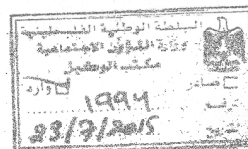 السلطة الوطنية الفلسطينية
وزارة الشؤون الاجتماعية
مكتب الوكيل
صادر
وارد
1994
23/7/2015